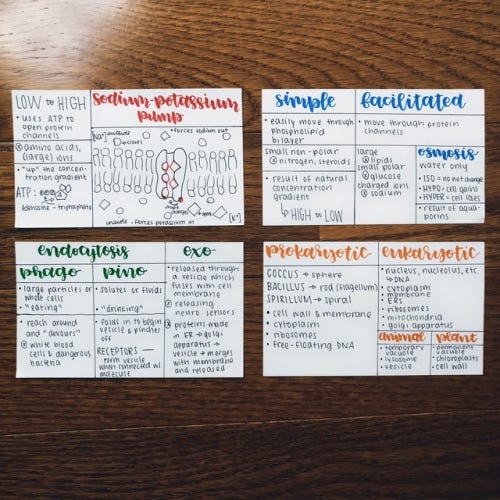 LOW to HIGH
• uses ATP to
open protein
channels
amino acids,
(large) ions
• "up" the concen-
tration gradient
ATP:
adenosine - triphosphate
sodium-potassium
pump
[Na+] outside
closes
• forces sodium out
inside
• forces potassium in
[K+]
simple
• easily move through
phospholipid
bilayer
small non-polar
nitrogen, steroids
• result of natural
concentration
gradient
↳ HIGH to LOW
facilitated
• move through protein
channels
large
lipids
small polar
glucose
charged ions
sodium
osmosis
water only
• ISO = no net change
• HYPO = cell gains
• HYPER = cell loses
• result of aqua-
porins
endocytosis
phago
• large particles or
whole cells
• "eating"
• reach around
and "devours"
white blood
cells & dangerous
bacteria
pino
• solutes or fluids
• "drinking"
• folds in to begin
vesicle & pinches
off
RECEPTORS —
form vesicle
when connected w/
molecule
exo
• released through
a vesicle which
fuses with cell
membrane
releasing
neuro sensors
proteins made
in ER → golgi
apparatus →
vesicle → merges
with membrane
and released
prokaryotic
COCCUS → sphere
BACILLUS → rod (flagellum)
SPIRILLUM → spiral
• cell wall & membrane
• cytoplasm
• ribosomes
• free-floating DNA
eukaryotic
• nucleus, nucleolus, etc.
↳ DNA
• cytoplasm
• membrane
• ERs
• ribosomes
• mitochondria
• golgi apparatus
animal
• temporary
vacuole
• lysosome
• vesicle
plant
• permanent
vacuole
• chloroplasts
• cell wall